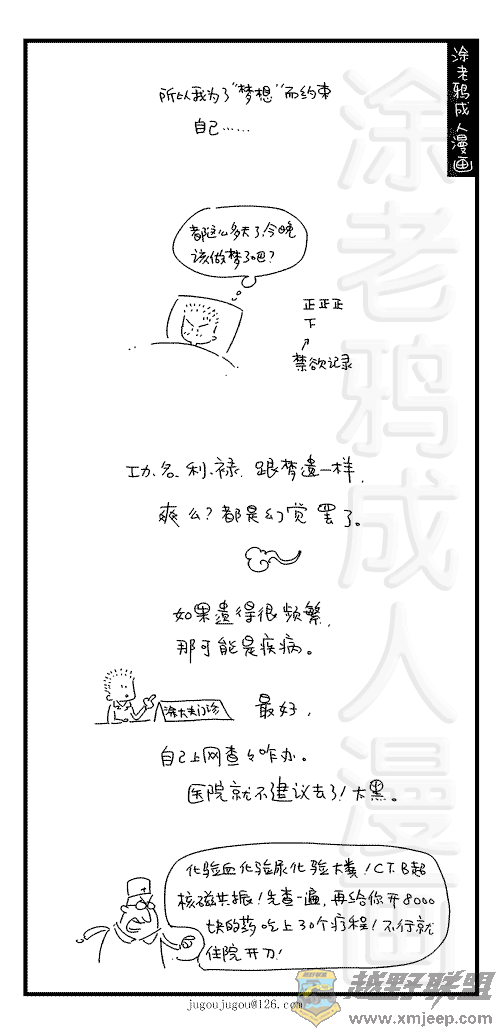 涂老鸦成人漫画
涂老鸦成人漫画
所以我为了"梦想"而约束
自己……
都这么多天了,今晚
该做梦了吧?
正正正
下
禁欲记录
功、名、利、禄,跟梦遗一样,
爽么?都是幻觉罢了。
如果遗得很频繁,
那可能是疾病。
涂大夫门诊
最好,
自己上网查查咋办。
医院就不建议去了!太黑。
化验血化验尿化验大粪!CT.B超
核磁共振!先查一遍,再给你开8000
块的药吃上30个疗程!不行就
住院开刀!
jugoujugou@126.com
越野联盟
www.xmjeep.com